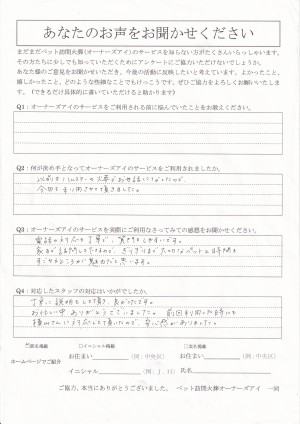 あなたのお声をお聞かせください
まだまだペット訪問火葬(オーナーズアイ)のサービスを知らない方がたくさんいらっしゃいます。
その方たちに少しでも知っていただくためにアンケートにご協力いただけないでしょうか。
あなた様のご意見をお聞かせいただき、今後の活動に反映したいと考えています。よかったこと、
嬉しかったこと、どのような些細なことでもけっこうです。ぜひご協力をよろしくお願いいたしま
す。(できるだけ具体的に書いていただけると助かります)
Q1：オーナーズアイのサービスをご利用される前に悩んでいたことをお教えください。
Q2：何が決め手となってオーナーズアイのサービスをご利用されましたか。
今回も利用させて頂きました。
Q3：オーナーズアイのサービスを実際にご利用なさってみての感想をお聞かせください。
電話の対応も丁寧で、
すごせるところが魅力だと思います。
Q4：対応したスタッフの対応はいかがでしたか。
丁寧に説明もして頂き、良かったです。
前回利用した時にも
対応して頂いたので、安心感がありました。
匿名掲載
イニシャル掲載
実名掲載
ホームページでご紹介
お住まい
(例：中央区)
お住まい
(例：中央区)
イニシャル
(例：J．H)
氏名
ご協力、本当にありがとうございました。 ペット訪問火葬オーナーズアイ 一同